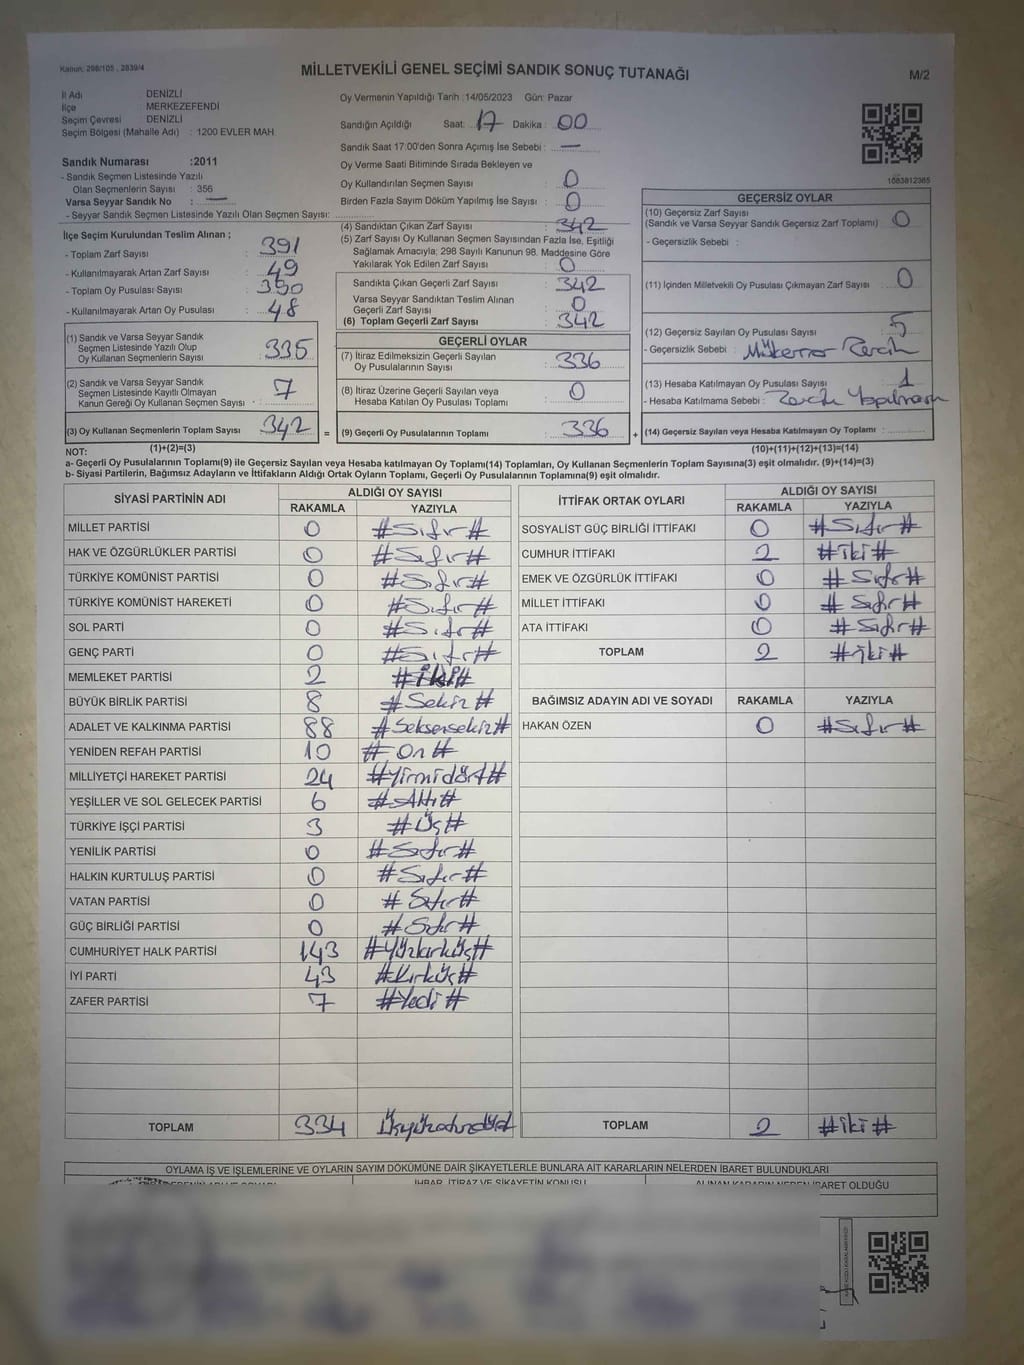 Kanun: 298/105 , 2839/4
MİLLETVEKİLİ GENEL SEÇİMİ SANDIK SONUÇ TUTANAĞI
M/2
İl Adı DENİZLİ
İlçe MERKEZEFENDİ
Seçim Çevresi DENİZLİ
Seçim Bölgesi (Mahalle Adı) : 1200 EVLER MAH
Sandık Numarası :2011
- Sandık Seçmen Listesinde Yazılı
Olan Seçmenlerin Sayısı : 356
Varsa Seyyar Sandık No : —
- Seyyar Sandık Seçmen Listesinde Yazılı Olan Seçmen Sayısı:
Oy Vermenin Yapıldığı Tarih :14/05/2023 Gün: Pazar
Sandığın Açıldığı Saat: 17 Dakika : 00
Sandık Saat 17:00'den Sonra Açımış İse Sebebi : —
Oy Verme Saati Bitiminde Sırada Bekleyen ve
Oy Kullandırılan Seçmen Sayısı : 0
Birden Fazla Sayım Döküm Yapılmış İse Sayısı : 0
1083812365
İlçe Seçim Kurulundan Teslim Alınan ;
- Toplam Zarf Sayısı : 391
- Kullanılmayarak Artan Zarf Sayısı : 49
- Toplam Oy Pusulası Sayısı : 390
- Kullanılmayarak Artan Oy Pusulası : 48
(1) Sandık ve Varsa Seyyar Sandık
Seçmen Listesinde Yazılı Olup
Oy Kullanan Seçmenlerin Sayısı : 335
(2) Sandık ve Varsa Seyyar Sandık
Seçmen Listesinde Kayıtlı Olmayan
Kanun Gereği Oy Kullanan Seçmen Sayısı : 7
(3) Oy Kullanan Seçmenlerin Toplam Sayısı : 342
(1)+(2)=(3)
(4) Sandıktan Çıkan Zarf Sayısı : 342
(5) Zarf Sayısı Oy Kullanan Seçmen Sayısından Fazla İse, Eşitliği
Sağlamak Amacıyla; 298 Sayılı Kanunun 98. Maddesine Göre
Yakılarak Yok Edilen Zarf Sayısı : 0
Sandıkta Çıkan Geçerli Zarf Sayısı : 342
Varsa Seyyar Sandıktan Teslim Alınan
Geçerli Zarf Sayısı : 0
(6) Toplam Geçerli Zarf Sayısı : 342
GEÇERLİ OYLAR
(7) İtiraz Edilmeksizin Geçerli Sayılan
Oy Pusulalarının Sayısı : 336
(8) İtiraz Üzerine Geçerli Sayılan veya
Hesaba Katılan Oy Pusulası Toplamı : 0
= (9) Geçerli Oy Pusulalarının Toplamı : 336 +
GEÇERSİZ OYLAR
(10) Geçersiz Zarf Sayısı
(Sandık ve Varsa Seyyar Sandık Geçersiz Zarf Toplamı) : 0
- Geçersizlik Sebebi :
(11) İçinden Milletvekili Oy Pusulası Çıkmayan Zarf Sayısı : 0
(12) Geçersiz Sayılan Oy Pusulası Sayısı : 5
- Geçersizlik Sebebi :
(13) Hesaba Katılmayan Oy Pusulası Sayısı : 1
- Hesaba Katılmama Sebebi :
(14) Geçersiz Sayılan veya Hesaba Katılmayan Oy Toplamı :
(10)+(11)+(12)+(13)=(14)
NOT:
a- Geçerli Oy Pusulalarının Toplamı(9) ile Geçersiz Sayılan veya Hesaba katılmayan Oy Toplamı(14) Toplamları, Oy Kullanan Seçmenlerin Toplam Sayısına(3) eşit olmalıdır. (9)+(14)=(3)
b- Siyasi Partilerin, Bağımsız Adayların ve İttifakların Aldığı Ortak Oyların Toplamı, Geçerli Oy Pusulalarının Toplamına(9) eşit olmalıdır.
SİYASİ PARTİNİN ADI ALDIĞI OY SAYISI
RAKAMLA YAZIYLA
MİLLET PARTİSİ 0 #Sıfır#
HAK VE ÖZGÜRLÜKLER PARTİSİ 0 #Sıfır#
TÜRKİYE KOMÜNİST PARTİSİ 0 #Sıfır#
TÜRKİYE KOMÜNİST HAREKETİ 0 #Sıfır#
SOL PARTİ 0 #Sıfır#
GENÇ PARTİ 0 #Sıfır#
MEMLEKET PARTİSİ 2 #iki#
BÜYÜK BİRLİK PARTİSİ 8 #Sekiz#
ADALET VE KALKINMA PARTİSİ 88 #Seksensekiz#
YENİDEN REFAH PARTİSİ 10 #On#
MİLLİYETÇİ HAREKET PARTİSİ 24 #Yirmidört#
YEŞİLLER VE SOL GELECEK PARTİSİ 6 #Altı#
TÜRKİYE İŞÇİ PARTİSİ 3 #Üç#
YENİLİK PARTİSİ 0 #Sıfır#
HALKIN KURTULUŞ PARTİSİ 0 #Sıfır#
VATAN PARTİSİ 0 #Sıfır#
GÜÇ BİRLİĞİ PARTİSİ 0 #Sıfır#
CUMHURİYET HALK PARTİSİ 143 #Yüzkırküç#
İYİ PARTİ 43 #Kırküç#
ZAFER PARTİSİ 7 #Yedi#
TOPLAM 334
İTTİFAK ORTAK OYLARI ALDIĞI OY SAYISI
RAKAMLA YAZIYLA
SOSYALİST GÜÇ BİRLİĞİ İTTİFAKI 0 #Sıfır#
CUMHUR İTTİFAKI 2 #iki#
EMEK VE ÖZGÜRLÜK İTTİFAKI 0 #Sıfır#
MİLLET İTTİFAKI 0 #Sıfır#
ATA İTTİFAKI 0 #Sıfır#
TOPLAM 2 #iki#
BAĞIMSIZ ADAYIN ADI VE SOYADI RAKAMLA YAZIYLA
HAKAN ÖZEN 0 #Sıfır#
TOPLAM 2 #iki#
OYLAMA İŞ VE İŞLEMLERİNE VE OYLARIN SAYIM DÖKÜMÜNE DAİR ŞİKAYETLERLE BUNLARA AİT KARARLARIN NELERDEN İBARET BULUNDUKLARI
İHBAR, İTİRAZ VE ŞİKAYETİN KONUSU
ALINAN KARARIN NEDEN İBARET OLDUĞU